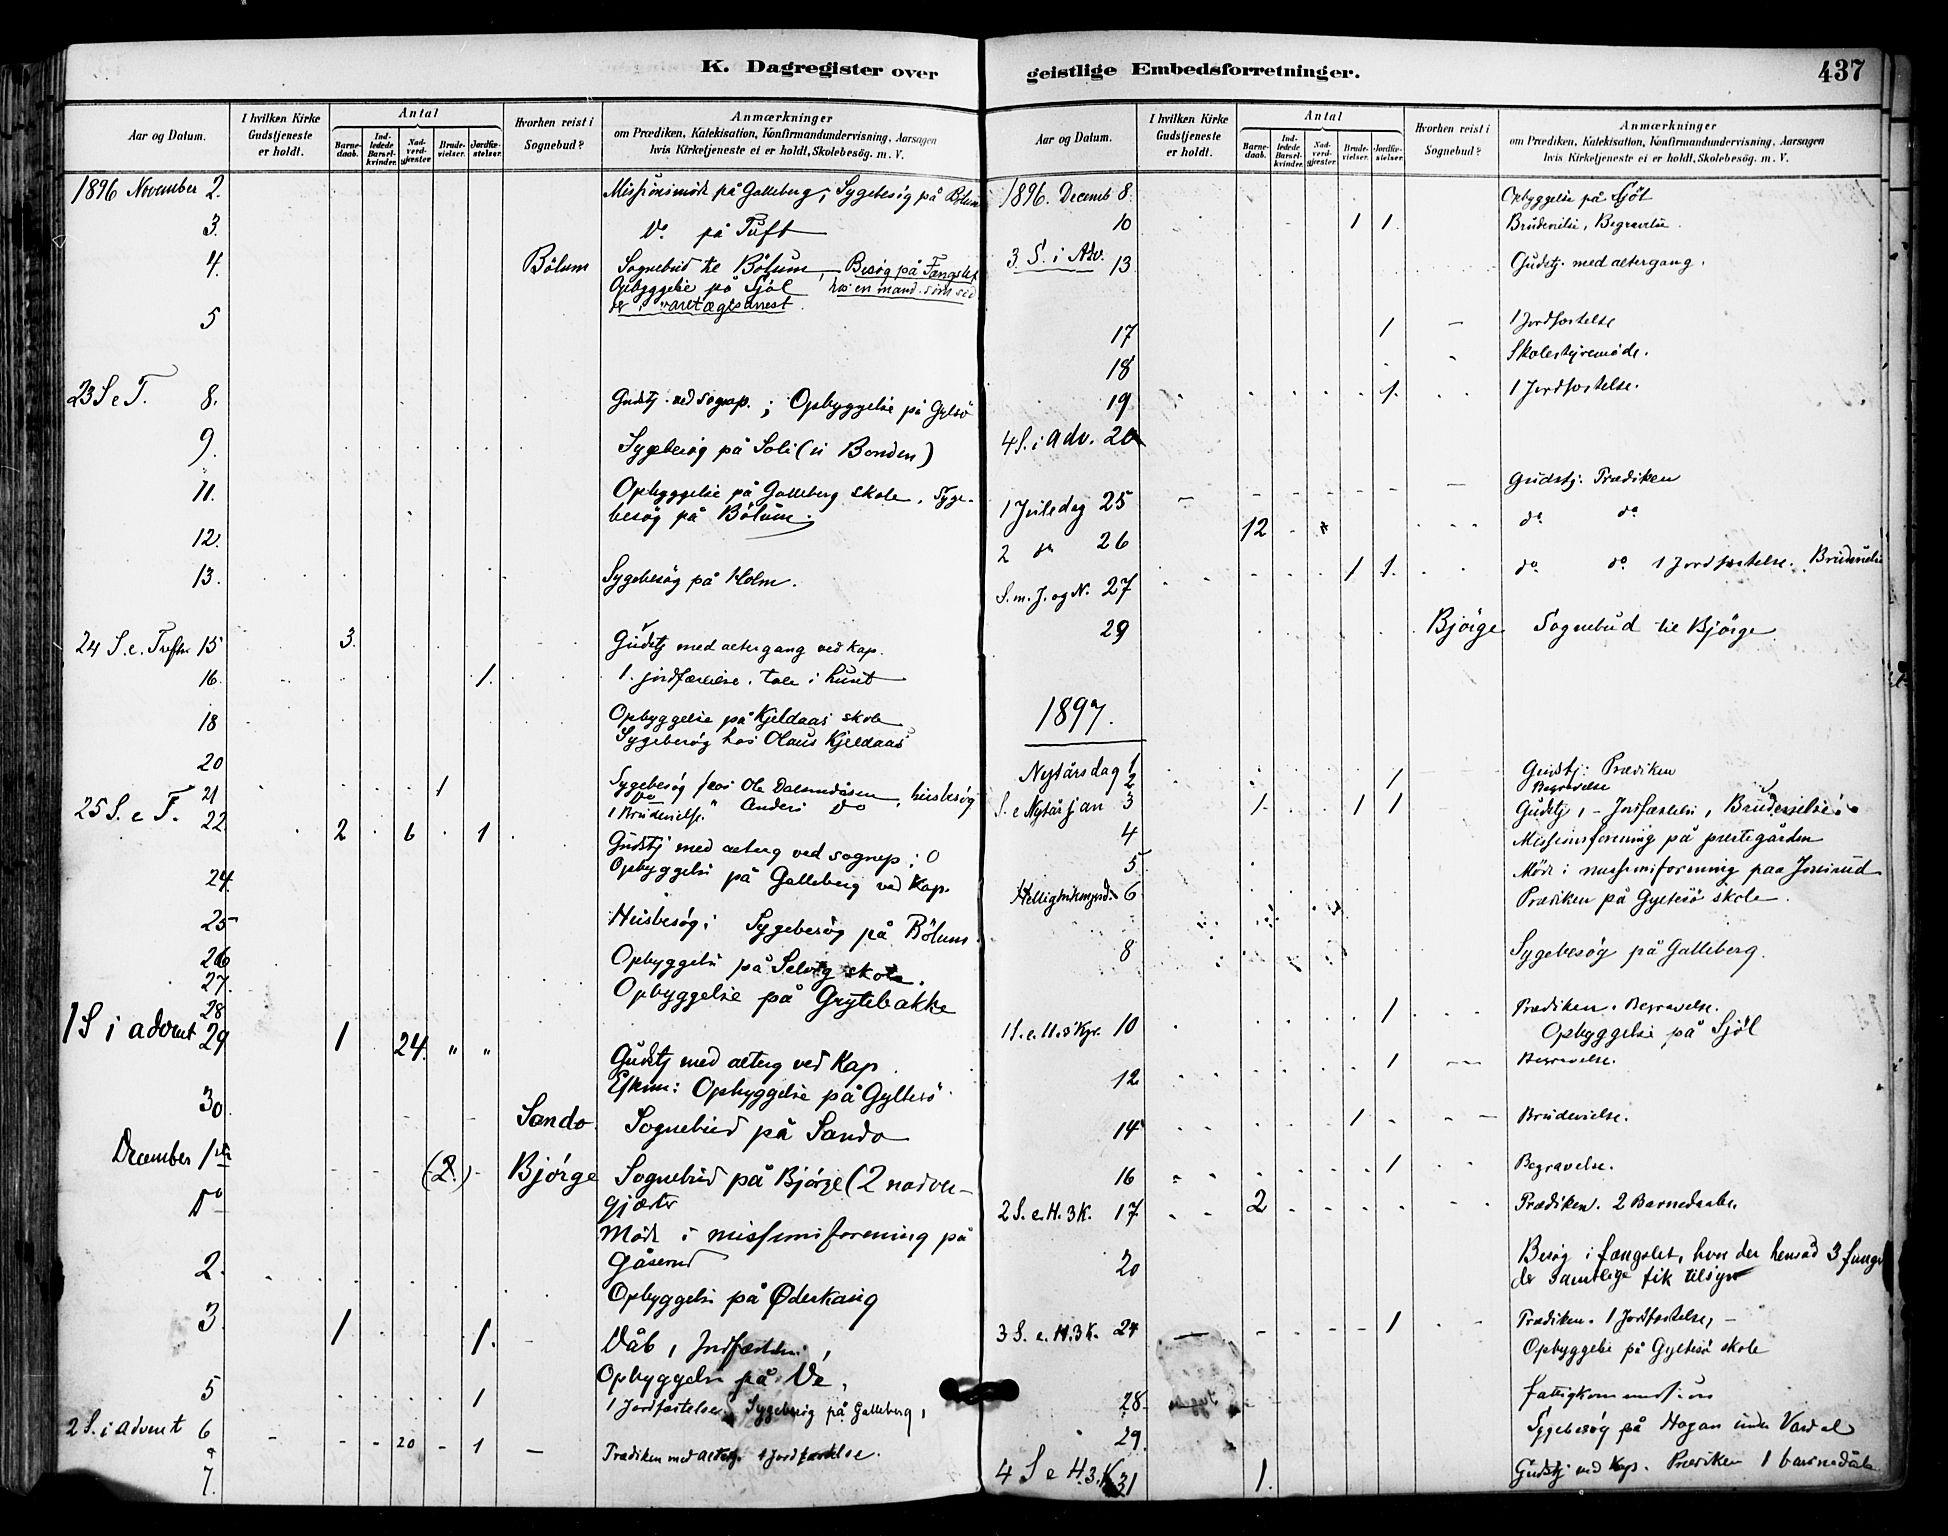 K. Dagregister over
Antal
Aar og Datum.
I hvilken Kirke Gudstjeneste er holdt.
Barnedaab.
Indledede Barselkvinder.
Nadverdgjester
Brudevielser.
Jordfæstelser.
Hvorhen reist i Sognebud?
Anmærkninger
om Prædiken, Katekisation, Konfirmandundervisning, Aarsagen
hvis Kirketjeneste ei er holdt, Skolebesøg. m. V.
1896 November 2. Missionsmøde på Galleberg; Sygebesøg på Bölum
3. Do på Tuft
4. Bölum Sognebud til Bölum, Besøg på Fængslet
Opbyggelse på Sjöl hos en mand som sad
der i varetægtsarrest.
5
23 S e T. 8. Gudstj. ved sognep.; Opbyggelse på Gyltesö
9. Sygebesög på Soli (ei Bonden)
11. Opbyggelse på Galleberg skole. Syge-
besög på Bölum.
12.
13. Sygebesög på Holm.
24 S. e. Trefh 15 3. Gudstj med altergang ved Kap.
16. 1. 1. jordfæstelse. tale i huset
18 Opbyggelse på Kjeldaas skole
Sygebesøg hos Olaus Kjeldaas
20
21 1 Sygebesøg hos Ole, husbesög
1 Brudevielse. " Anders Do
25 S. e T. 22 2 6 1 Gudstj med alterg ved sognep:
24. Opbyggelse på Galleberg ved Kap.
25 Husbesøg: Sygebesøg på Bölum.
26 Opbyggelse på Selvig skole.
27. Opbyggelse på Grytebakke
28
1 S i advent 29 1 24. " " Gudstj med alterg ved Kap
Efterm: Opbyggelse på Gyltesö
30. Sando Sognebud på Sando
December 1ste (2.) Bjørge Sognebud på Bjørge (2 nadver-
gjæster
Do Møde i missionsforening på
Gåserud
2. Opbyggelse på Øderkaug
3. 1 1. Dåb, Jordfæstelse,
Opbyggelse på Vé,
5 1 1 Jordfæstelse, Sygebesøg på Galleberg,
2 S. i advent 6 20 1 Prædiken med alterg. 1 Jordfæstelse.
7.
geistlige Embedsforretninger.
437
Antal
Aar og Datum.
I hvilken Kirke Gudstjeneste er holdt.
Barnedaab.
Indledede Barselkvinder.
Nadverdgjester
Brudevielser.
Jordfæstelser.
Hvorhen reist i Sognebud?
Anmærkninger
om Prædiken, Katekisation, Konfirmandundervisning, Aarsagen
hvis Kirketjeneste ei er holdt, Skolebesøg. m. V.
1896. Decemb 8. Opbyggelse på Sjöl
10 1 1. Brudevielse, Begravelse.
3. S. i Adv. 13 Gudstj. med altergang.
17 1 1 Jordfæstelse
18 Skolestyremøde.
19 1. 1 Jordfæstelse.
4 S. i Adv. 20
1 Juledag 25 Gudstj: Prædiken
2 do 26 12 do do
S. m. J. og N. 27 1 1. do do 1 Jordfæstelse. Brudevielse
29 Bjørge Sognebud til Bjørge
1897.
Nytårsdag 1 Gudstj: Prædiken
2 1 Begravelse
S. e Nytår Jan 3 1. 1 1 Gudstj, - Jordfæstelse, Brudevielse
4 Missionsforening på prestegården
5 Møde i missionsforening paa Jonsrud
Helligtrekongersd. 6 Prædiken på Gyltesö skole.
8 Sygebesøg på Galleberg.
1 S. e. H. 3 Kgr. 10 1 Prædiken. Begravelse.
Opbyggelse på Sjöl
12 1 Begravelse.
14 1 Brudevielse.
16 1 Begravelse.
2 S. e. H. 3 K. 17 2 Prædiken. 2 Barnedaabe.
20 Besøg i fængslet, hvor der hensad 3 fanger
der samtlige fik tilsyn
3 S. e. H. 3 K. 24 1 Prædiken. 1 Jordfæstelse, -
Opbyggelse på Gyltesö skole
28 fattigkommission
29 Sygebesøg på Hagan under Vardal
4 S e H. 3. K 31 1. Gudstj ved Kap. Prædiken 1 barnedåb